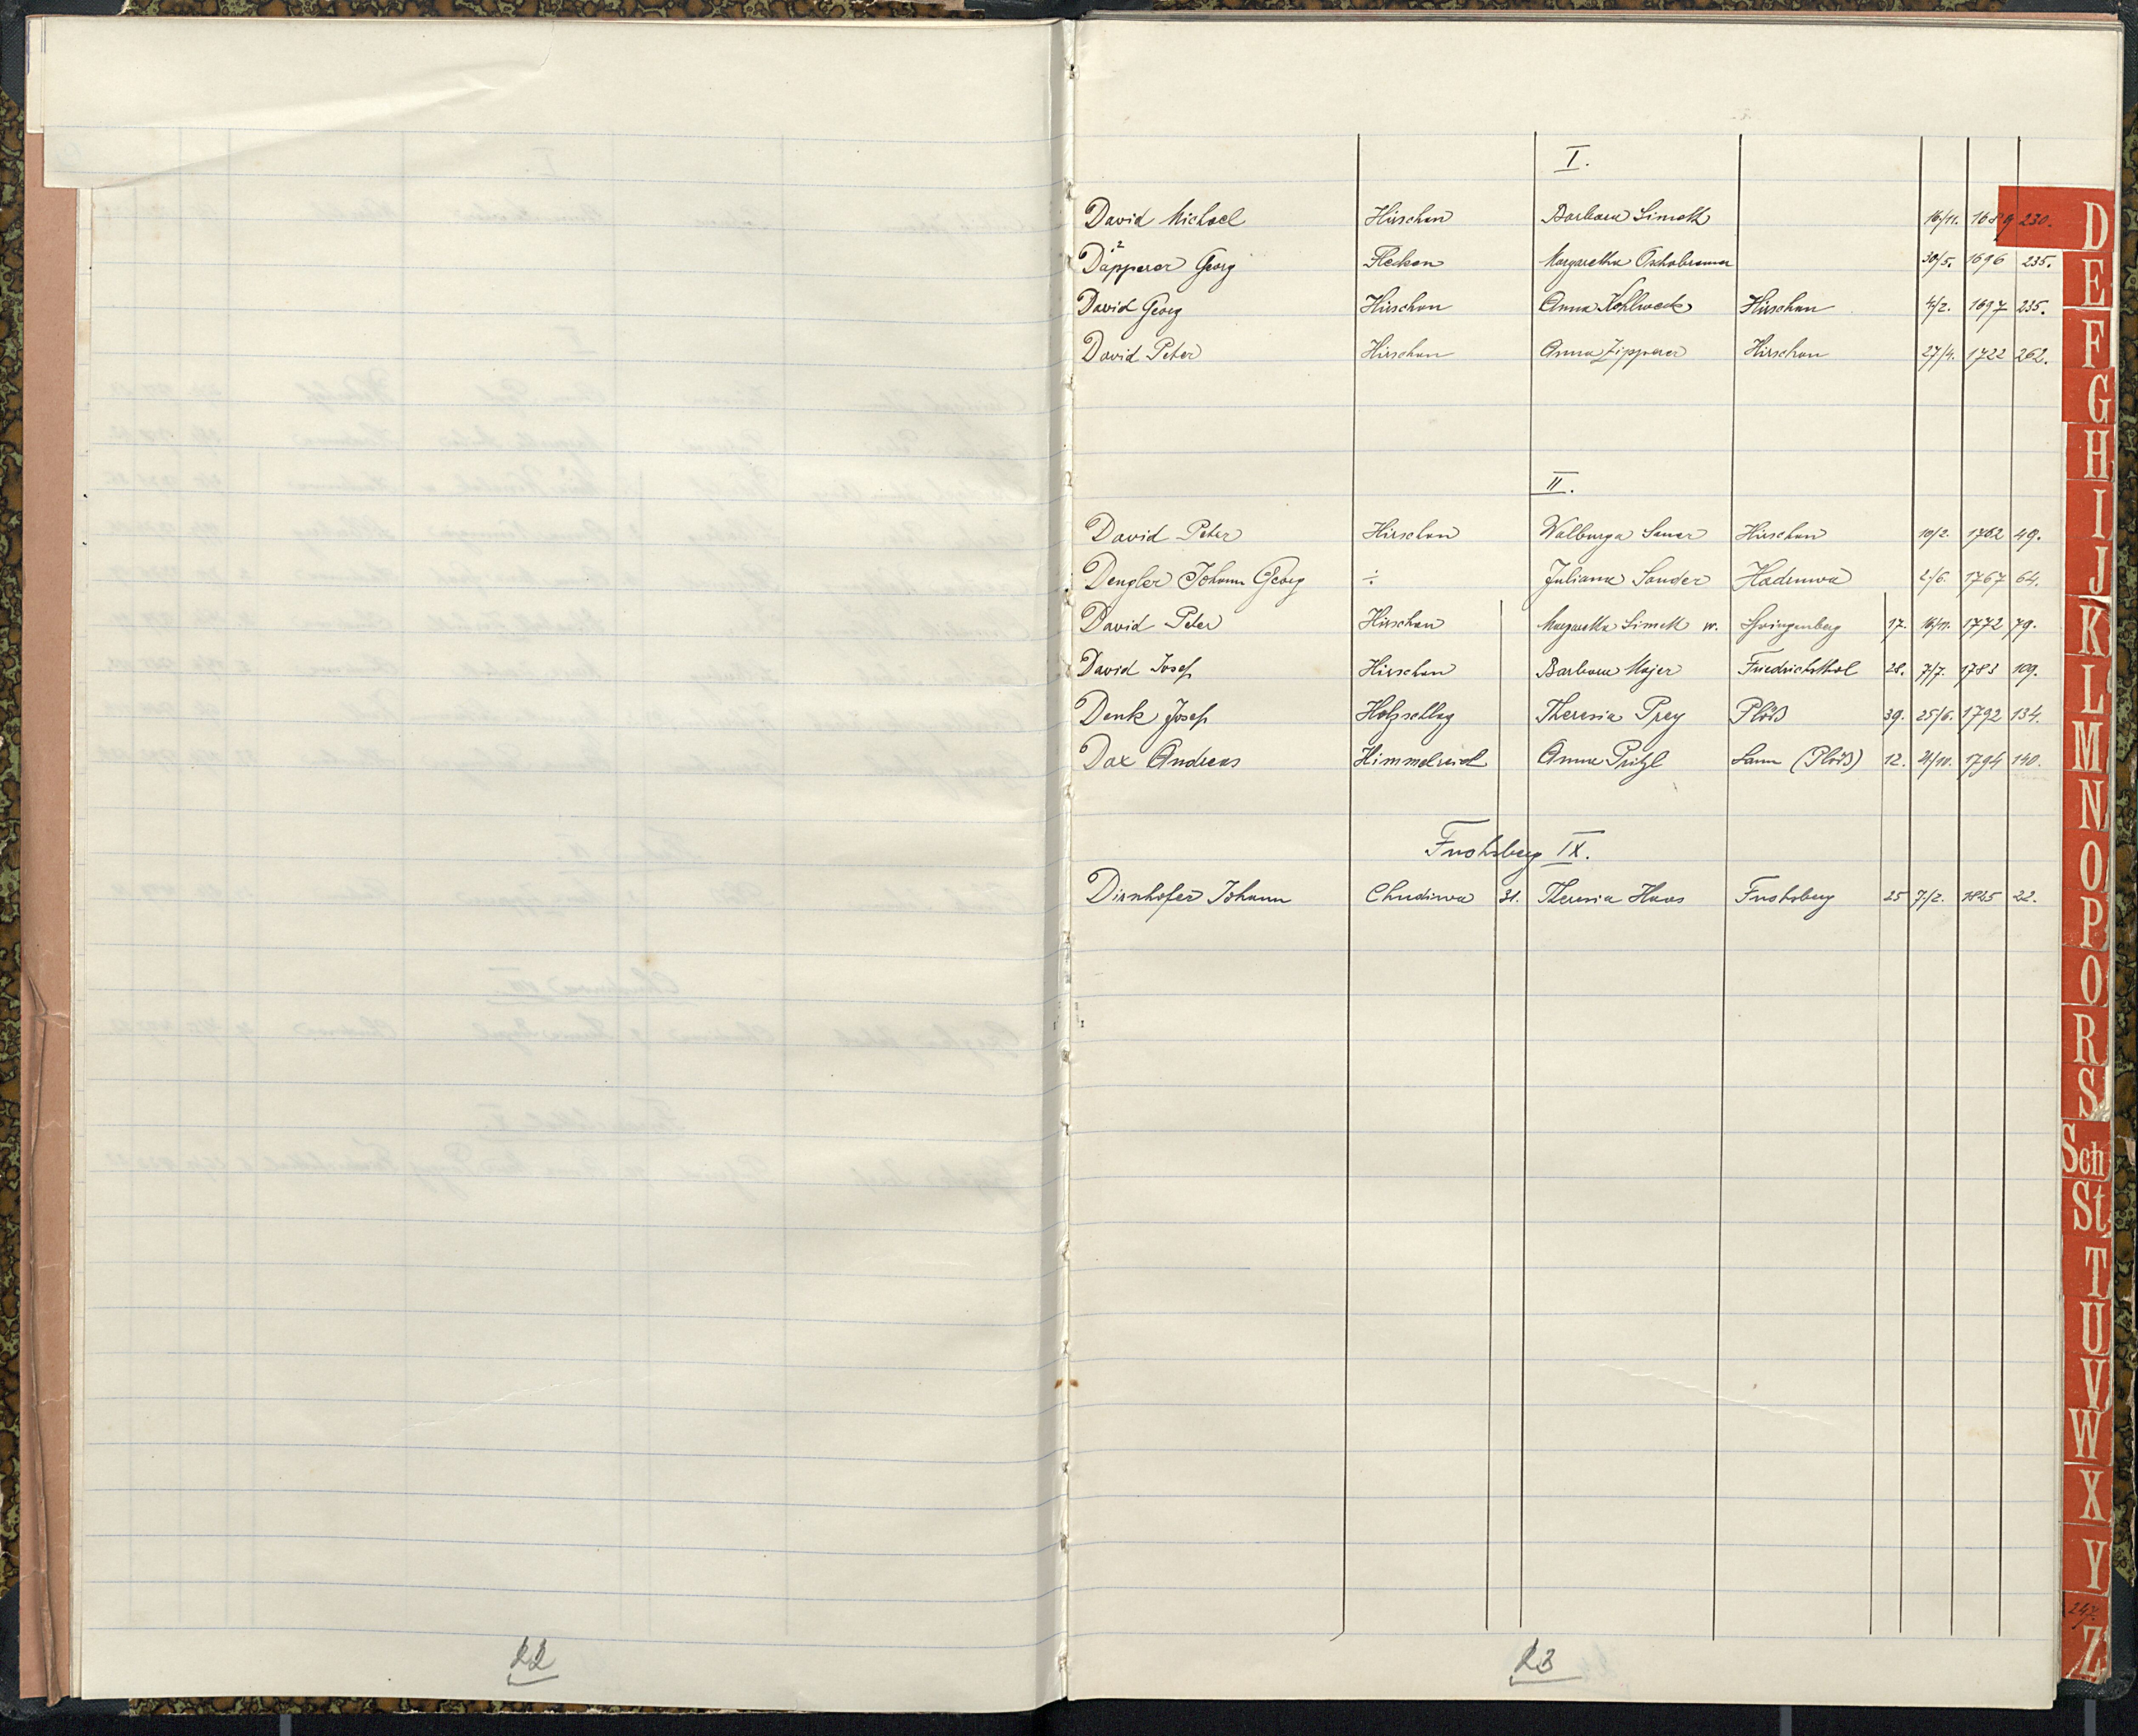 I.
David Michael Hirschau Barbara Simeth 16/11. 1689 230.
Dapperer Georg Flecken Margaretha 30/5. 1696 235.
David Georg Hirschau Anna Kohlweck Hirschau 4/2. 1697 235.
David Peter Hirschau Anna Zipperer Hirschau 27/4. 1722 262.
II.
David Peter Hirschau Walburga Sauer Hirschau 10/2. 1762 49.
Dengler Johann Georg ÷ Juliana Sander Hadruwa 2/6. 1767 64.
David Peter Hirschau Margaretha Simeth w. Springenberg 17. 16/11. 1772 79.
David Josef Hirschau Barbara Majer Friedrichsthal 28. 7/7. 1783 109.
Denk Josef Holzschlag Theresia Prey Plöß 39. 25/6. 1792 134.
Dax Andreas Himmelreich Anna Pritzl Lam (Plöß) 12. 21/10. 1794 140.
Fuchsberg IX.
Dirnhofer Johann Chudiwa 31. Theresia Haas Fuchsberg 25 7/2. 1825 22.
22
23
D
E
F
G
H
I
J
K
L
M
N
O
P
Q
R
S
Sch
St
T
U
V
W
X
Y
247.
Z